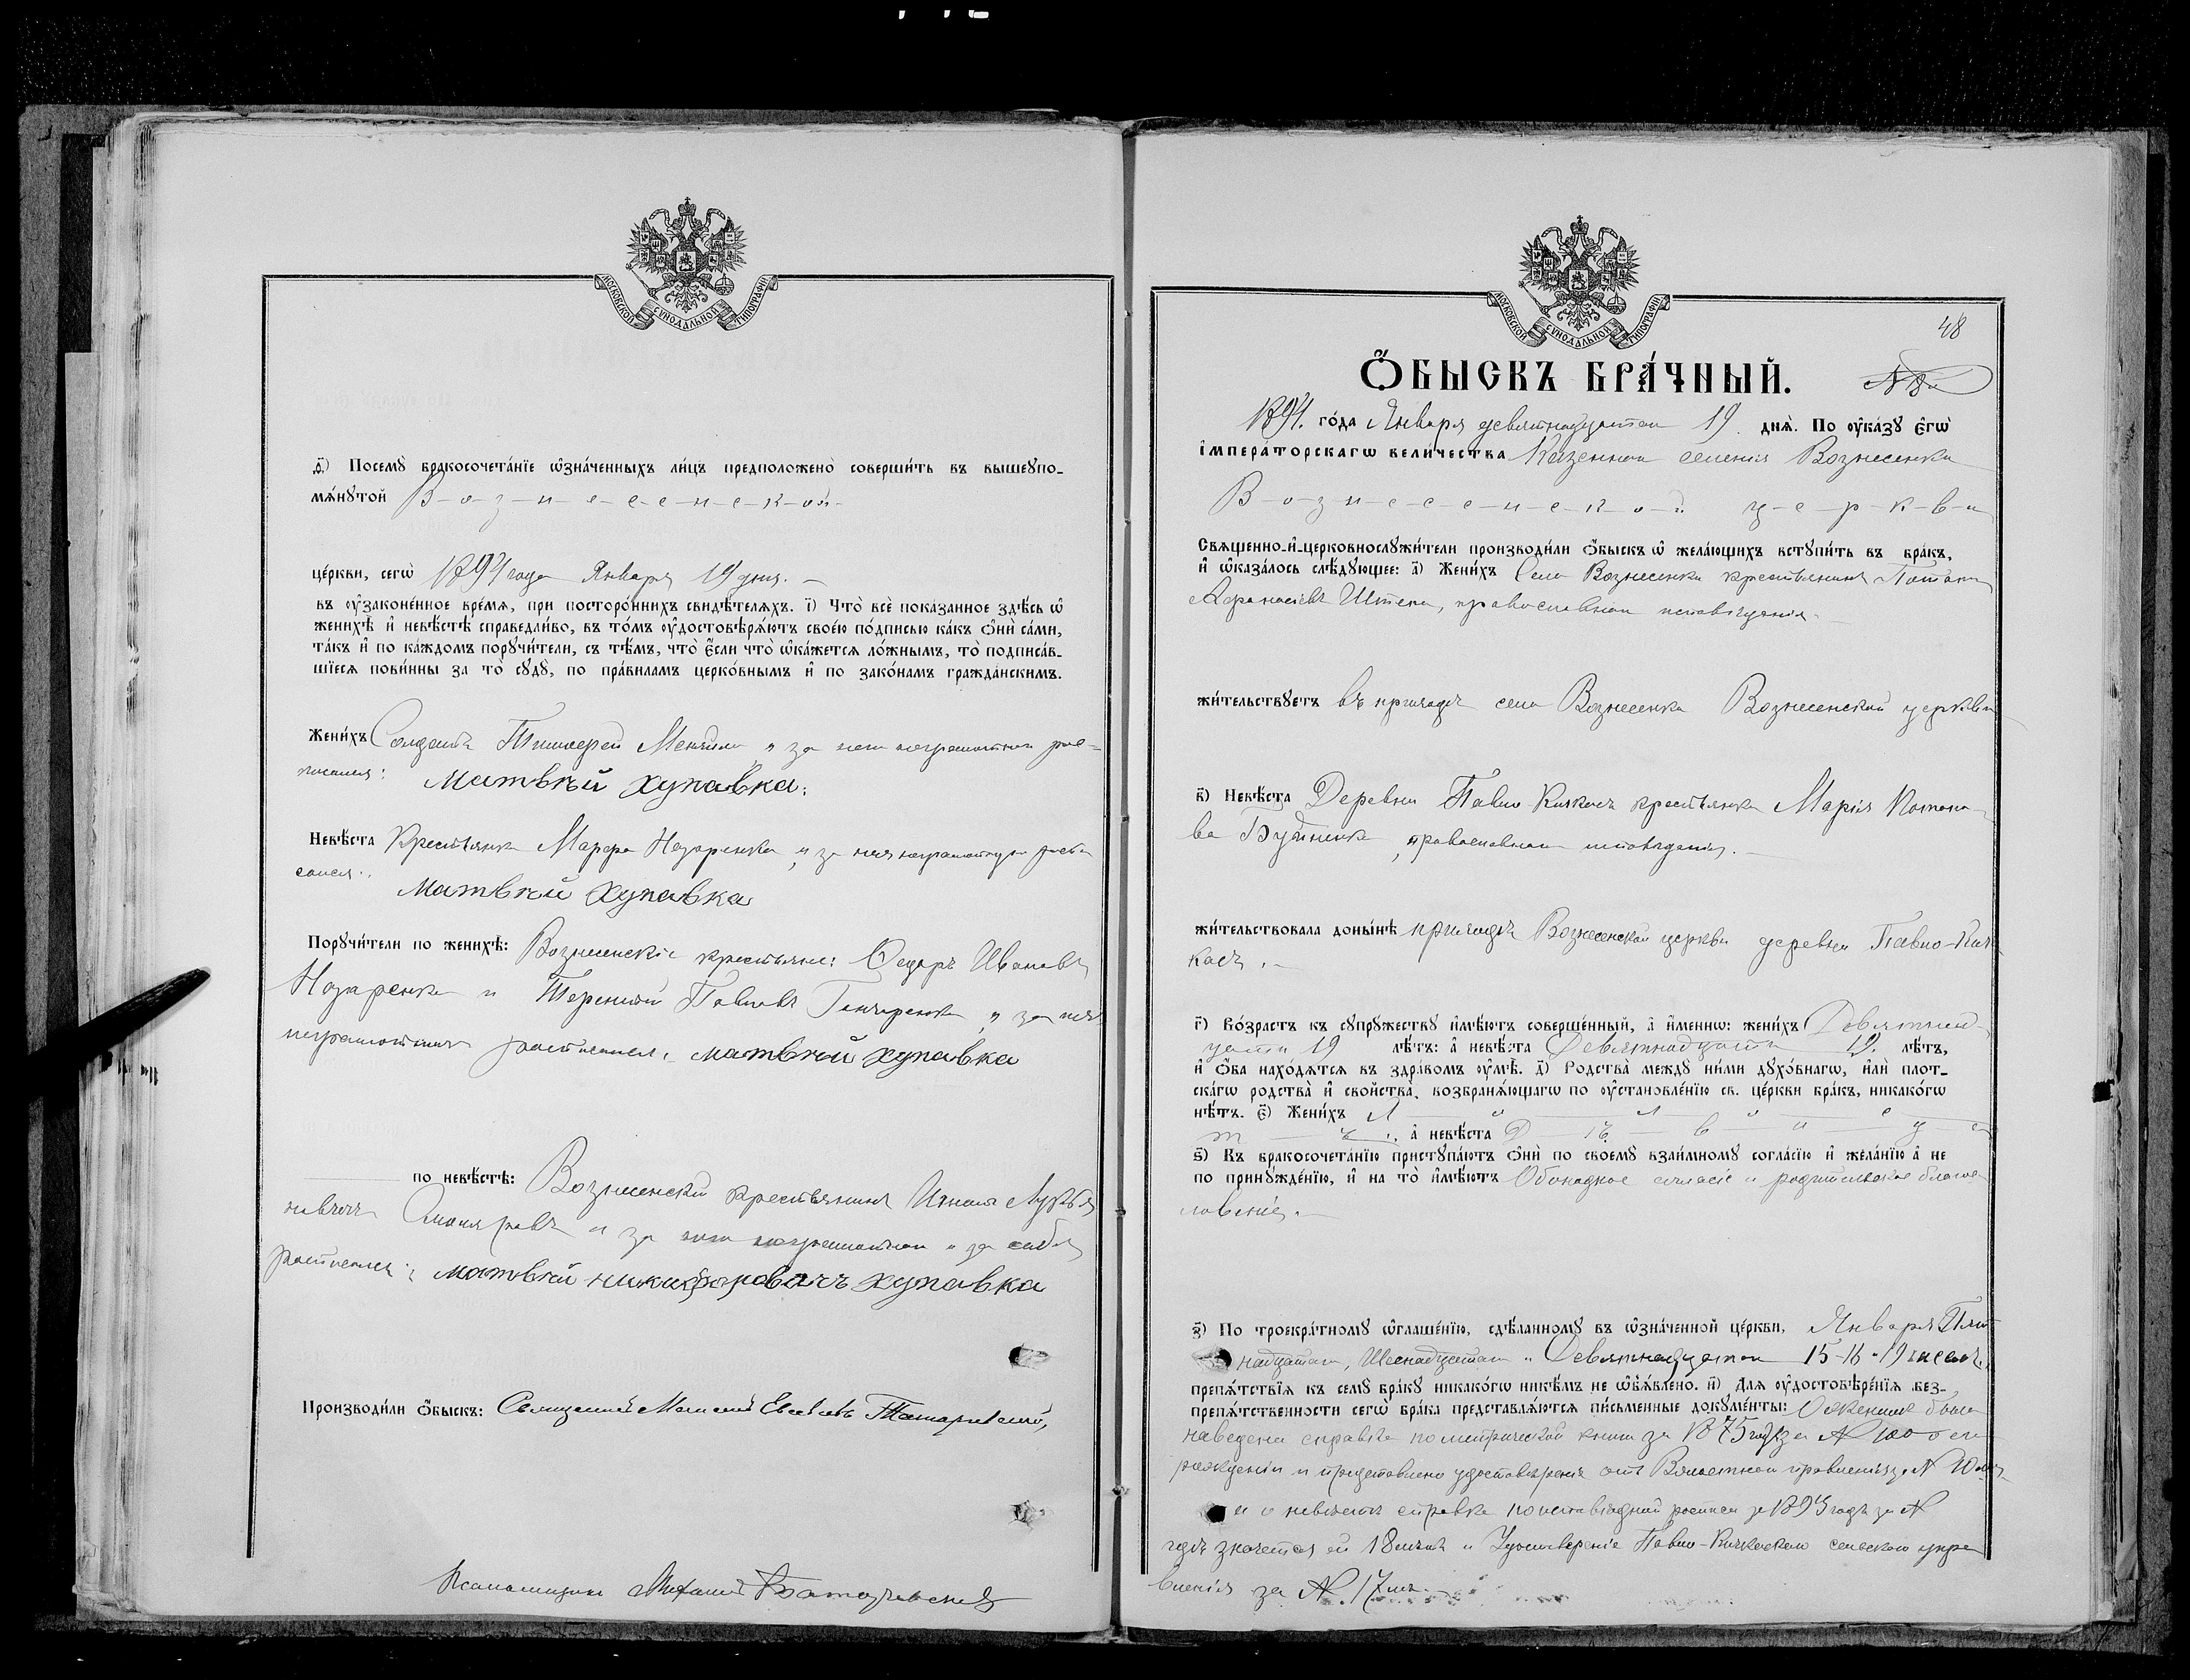 МОСКОВСКОЙ СУНОДАЛЬНОЙ ТИПОГРАФІИ
ѳ҃) Посемꙋ̀ бракосочета́нїе ѡ҆зна́ченныхъ ли́цъ предположено̀ соверши́ть въ вышеꙋпо-
мѧ́нꙋтой В-о-з-н-е-с-е-н-с-к-ой-
це́ркви, сегѡ̀ 1894 года Января 19 дня. –
въ ᲂу҆законе́нное вре́мѧ, при посторо́ннихъ свидѣ́телѧхъ. і҃) Что̀ всѐ пока́занное здѣ́сь ѡ҆
женихѣ̀ и҆ невѣ́стѣ справедли́во, въ то́мъ ᲂу҆достовѣрѧ́ютъ свое́ю по́дписью ка́къ ѻ҆нѝ са́ми,
та́къ и҆ по ка́ждомъ порꙋчи́тели, съ тѣ́мъ, что̀ є҆́сли что̀ ѡ҆ка́жетсѧ ло́жнымъ, то̀ подписа́в-
шїесѧ пови́нны за то̀ сꙋдꙋ̀, по пра́виламъ церко́внымъ и҆ по зако́намъ гражда́нскимъ.
Жени́хъ Солдатъ Тимофей и за него неграмотнаго рос-
писался: Матвѣй Хупавка.
Невѣ́ста Крестьянка Марфа Назаренкова и за нея неграмотную роспи
сался: Матвѣй Хупавка
Порꙋчи́тели по женихѣ̀: Вознесенскіе крестьяне: Ѳедоръ Ивановъ
Назаренко и Терентій Павловъ Гончаренко и за нихъ
неграмотныхъ росписался: Матвѣй Хупавка
по невѣ́стѣ: Вознесенскій крестьянинъ Игнатъ
и за него неграмотнаго и за себя
росписался: Матвѣй Никифоровичъ Хупавка
Производи́ли ѻ҆́быскъ: Священникъ
Псаломщикъ
МОСКОВСКОЙ СУНОДАЛЬНОЙ ТИПОГРАФІИ
48
Ѻ҆́БЫСКЪ БРА́ЧНЫЙ.
1894. го́да Января девятнадцатаго 19 днѧ̀. По ᲂу҆ка́зꙋ є҆гѡ̀
і҆мпера́торскагѡ вели́чества Казеннаго селенія Вознесенки
В-о-з-н-е-с-е-н-с-к-о-й ц-е-р-к-в-и
Свѧще́нно-и҆-церковнослꙋжи́тели производи́ли ѻ҆́быскъ ѡ҆ жела́ющихъ встꙋпи́ть въ бра́къ,
и҆ ѡ҆каза́лось слѣ́дꙋющее: а҃) Жени́хъ Села Вознесенки крестьянинъ Потапъ
Афанасіевъ Штепа, православнаго исповѣданія.
жи́тельствꙋетъ въ приходѣ села Вознесенки Вознесенской церкви
в҃) Невѣ́ста Деревни Павло-Кичкасъ крестьянка Марія Потапо-
ва православнаго исповѣданія. –
жи́тельствовала доны́нѣ приходѣ Вознесенской церкви деревни Павло-Кич
касъ. –
г҃) Во́зрастъ къ сꙋпрꙋ́жествꙋ и҆мѣ́ютъ соверше́нный, а҆ и҆́меннѡ: жени́хъ Девятнад-
цати 19 лѣ́тъ: а҆ невѣ́ста Девятнадцати 19. лѣ́тъ,
и҆ ѻ҆́ба нахо́дѧтсѧ въ здра́вомъ ᲂу҆мѣ̀. д҃) Родства̀ междꙋ̀ ни́ми дꙋхо́внагѡ, и҆лѝ плот-
ска́гѡ родства̀ и҆ сво́йства̀, возбранѧ́ющагѡ по ᲂу҆становле́нїю св. це́ркви бра́къ, никако́гѡ
нѣ́тъ. є҃) Жени́хъ Х – о – л – о – с –
т – ъ, а҆ невѣ́ста Д – ѣ – в – и – ц – а
ѕ҃) Къ бракосочета́нїю пристꙋпа́ютъ ѻ҆нѝ по своемꙋ̀ взаи́мномꙋ согла́сїю и҆ жела́нїю а҆ не
по принꙋжде́нїю, и҆ на то̀ и҆мѣ́ютъ Обоюдное согласіе и родительское благос
ловеніе. –
з҃) По троекра́тномꙋ ѡ҆глаше́нїю, сдѣ́ланномꙋ въ ѡ҆зна́ченной це́ркви, Января Пят
надцатаго, Шеснадцатаго и Девятнадцатаго 15-16 и 19 числъ,
препѧ́тствїѧ къ семꙋ̀ бра́кꙋ никако́гѡ нике́мъ не ѡ҆б̾ѧ́влено. и҃) Длѧ ᲂу҆достовѣре́нїѧ без-
препѧ́тственности сегѡ̀ бра́ка представлѧ́ютсѧ пи́сьменные докꙋме́нты: О женихѣ была
наведена справка по метрической книги за 1875 годъ за № 100 о его
рожденіи и представлено удостовѣреніе отъ Волостнаго правленія за №
и о невѣстѣ справка по исповѣдной росписи за 1893 годъ за №
гдѣ значится ей 18 лѣтъ и Удостовѣреніе Павло-Кичкаскаго сельскаго упра
вленія за № 17мъ.